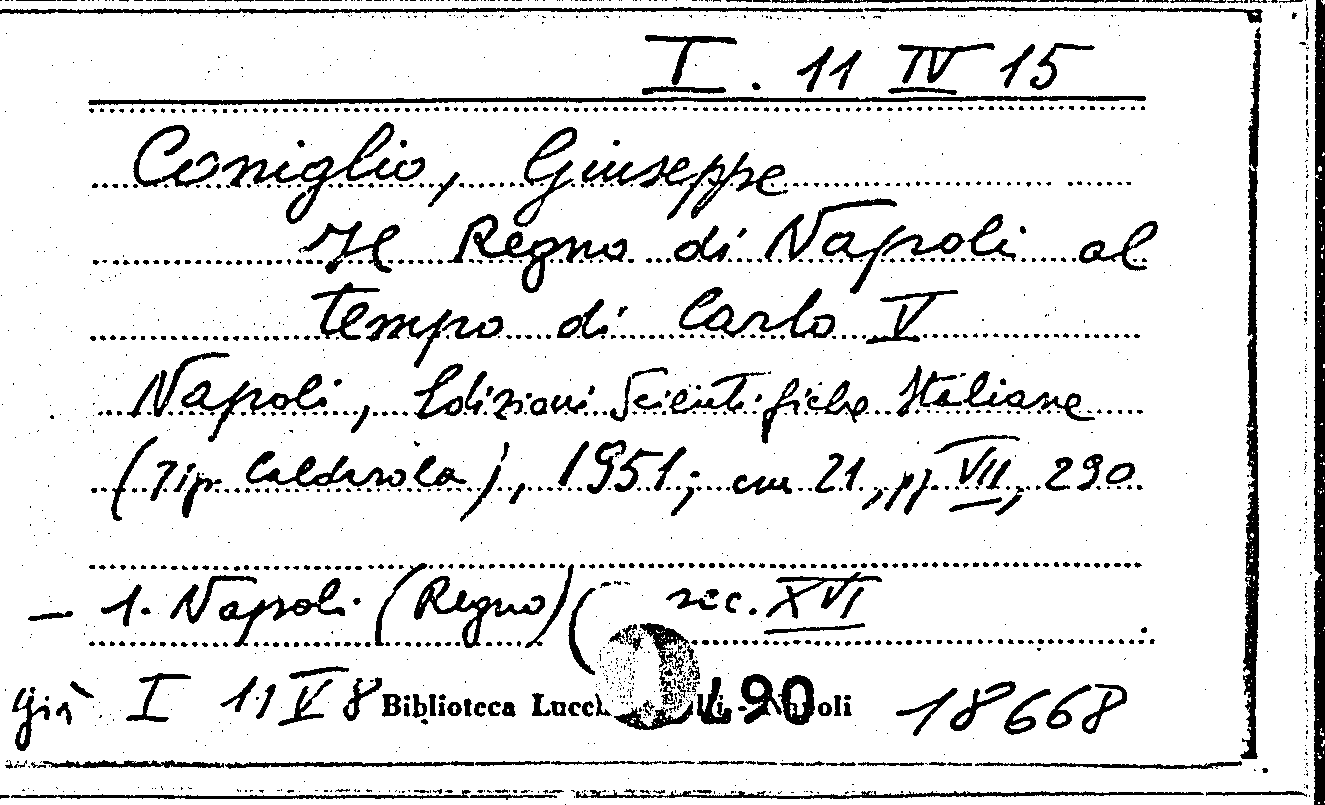 I. 11 IV 15
Coniglio, Giuseppe
Il Regno di Napoli al
tempo di Carlo V
Napoli, Edizioni Scientifiche Italiane
(Tip. Calderola), 1951; cm 21, pp VII, 290
— 1. Napoli (Regno) ( sec. XVI
già I 11 V 8 Biblioteca - Napoli 18668